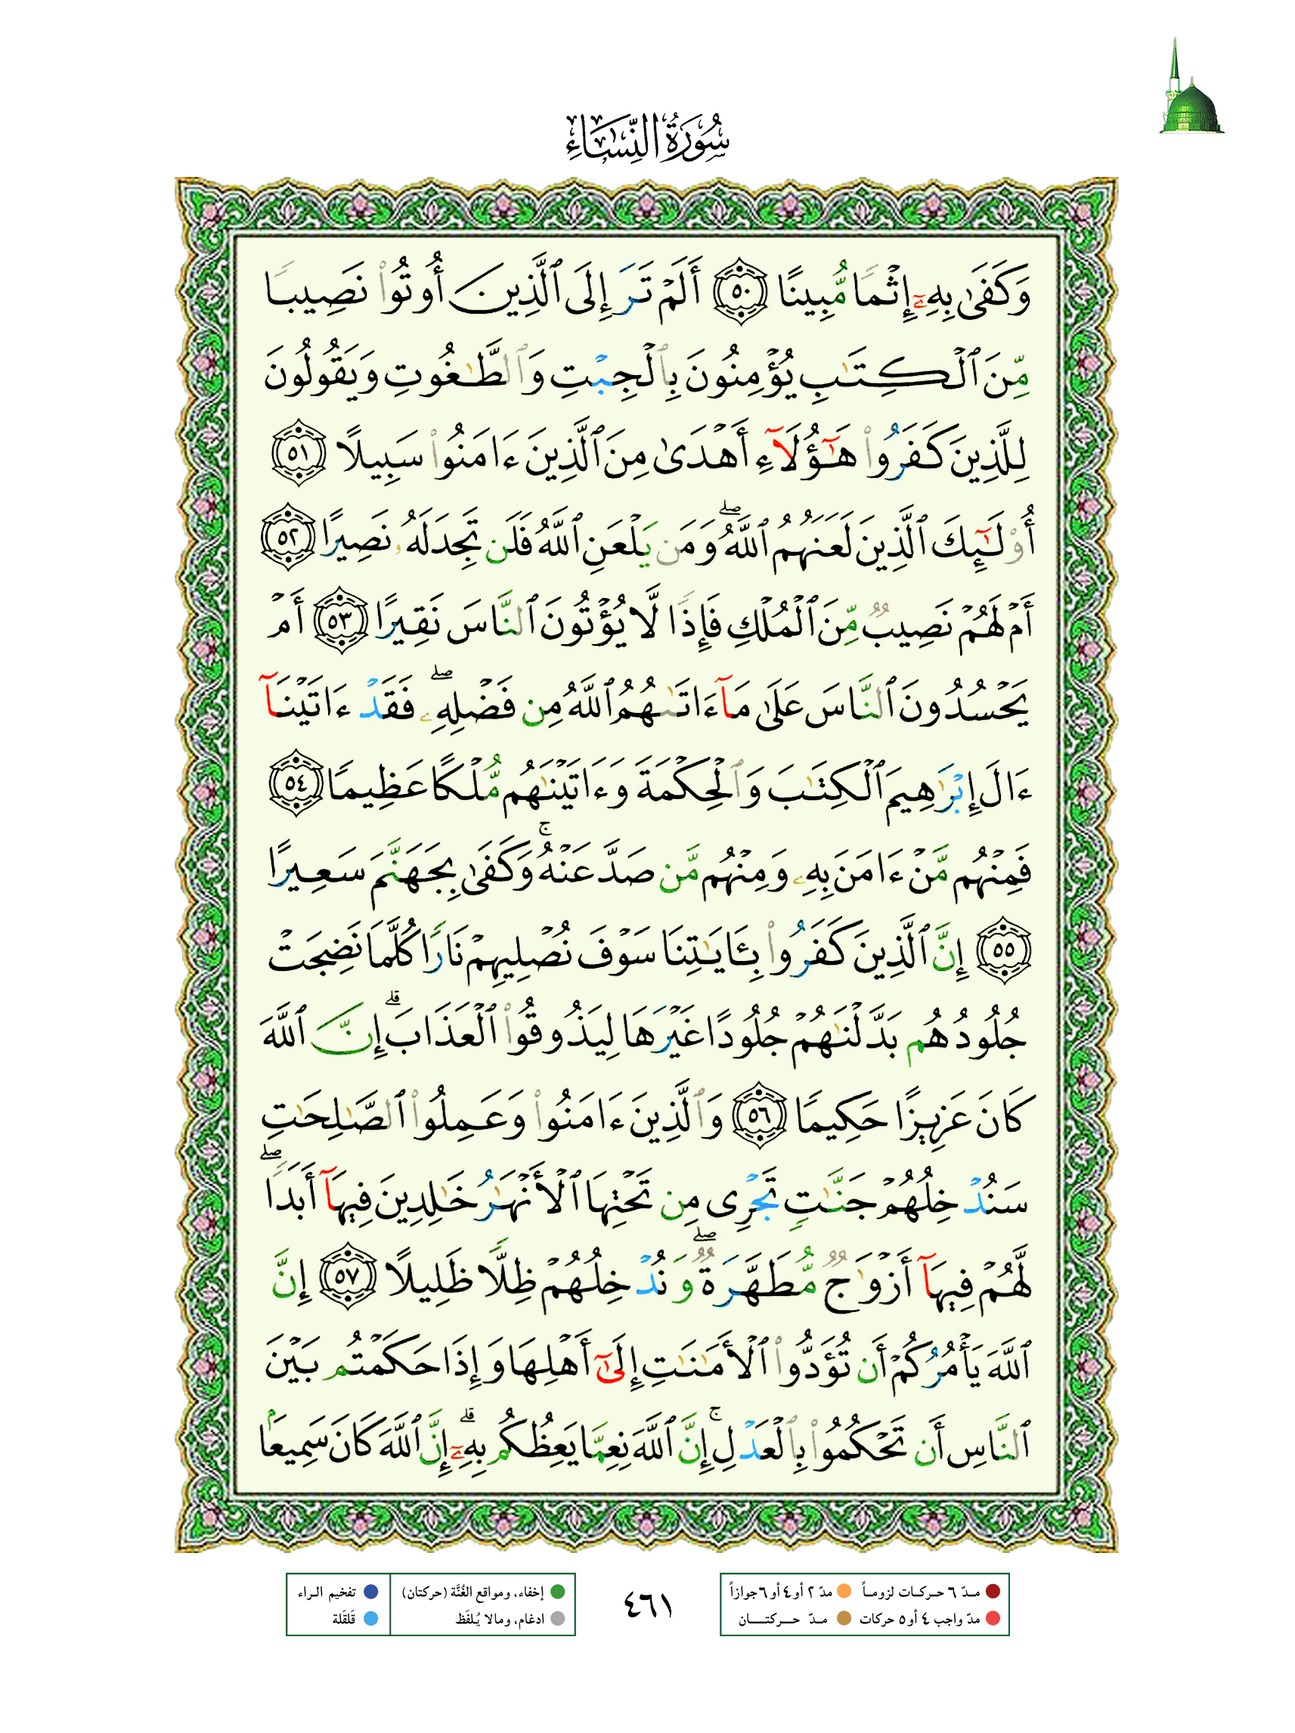 سُورَةُ النِّسَاءِ
وَكَفَىٰ بِهِۦٓ إِثْمًا مُّبِينًا ٥٠ أَلَمْ تَرَ إِلَى ٱلَّذِينَ أُوتُوا۟ نَصِيبًا
مِّنَ ٱلْكِتَـٰبِ يُؤْمِنُونَ بِٱلْجِبْتِ وَٱلطَّـٰغُوتِ وَيَقُولُونَ
لِلَّذِينَ كَفَرُوا۟ هَـٰٓؤُلَآءِ أَهْدَىٰ مِنَ ٱلَّذِينَ ءَامَنُوا۟ سَبِيلًا ٥١
أُو۟لَـٰٓئِكَ ٱلَّذِينَ لَعَنَهُمُ ٱللَّهُ ۖ وَمَن يَلْعَنِ ٱللَّهُ فَلَن تَجِدَ لَهُۥ نَصِيرًا ٥٢
أَمْ لَهُمْ نَصِيبٌ مِّنَ ٱلْمُلْكِ فَإِذًا لَّا يُؤْتُونَ ٱلنَّاسَ نَقِيرًا ٥٣ أَمْ
يَحْسُدُونَ ٱلنَّاسَ عَلَىٰ مَآ ءَاتَىٰهُمُ ٱللَّهُ مِن فَضْلِهِۦ ۖ فَقَدْ ءَاتَيْنَآ
ءَالَ إِبْرَٰهِيمَ ٱلْكِتَـٰبَ وَٱلْحِكْمَةَ وَءَاتَيْنَـٰهُم مُّلْكًا عَظِيمًا ٥٤
فَمِنْهُم مَّنْ ءَامَنَ بِهِۦ وَمِنْهُم مَّن صَدَّ عَنْهُ ۚ وَكَفَىٰ بِجَهَنَّمَ سَعِيرًا
٥٥ إِنَّ ٱلَّذِينَ كَفَرُوا۟ بِـَٔايَـٰتِنَا سَوْفَ نُصْلِيهِمْ نَارًا كُلَّمَا نَضِجَتْ
جُلُودُهُم بَدَّلْنَـٰهُمْ جُلُودًا غَيْرَهَا لِيَذُوقُوا۟ ٱلْعَذَابَ ۗ إِنَّ ٱللَّهَ
كَانَ عَزِيزًا حَكِيمًا ٥٦ وَٱلَّذِينَ ءَامَنُوا۟ وَعَمِلُوا۟ ٱلصَّـٰلِحَـٰتِ
سَنُدْخِلُهُمْ جَنَّـٰتٍ تَجْرِى مِن تَحْتِهَا ٱلْأَنْهَـٰرُ خَـٰلِدِينَ فِيهَآ أَبَدًا ۖ
لَّهُمْ فِيهَآ أَزْوَٰجٌ مُّطَهَّرَةٌ ۖ وَنُدْخِلُهُمْ ظِلًّا ظَلِيلًا ٥٧ إِنَّ
ٱللَّهَ يَأْمُرُكُمْ أَن تُؤَدُّوا۟ ٱلْأَمَـٰنَـٰتِ إِلَىٰٓ أَهْلِهَا وَإِذَا حَكَمْتُم بَيْنَ
ٱلنَّاسِ أَن تَحْكُمُوا۟ بِٱلْعَدْلِ ۚ إِنَّ ٱللَّهَ نِعِمَّا يَعِظُكُم بِهِۦٓ ۗ إِنَّ ٱللَّهَ كَانَ سَمِيعًۢا
مدّ ٦ حركات لزوماً مدّ ٢ أو ٤ أو ٦ جوازاً
مدّ واجب ٤ أو ٥ حركات مدّ حركتان
٤٦١
إخفاء، ومواقع الغُنَّة (حركتان) تفخيم الراء
ادغام، ومالا يُلفَظ قَلقَلة